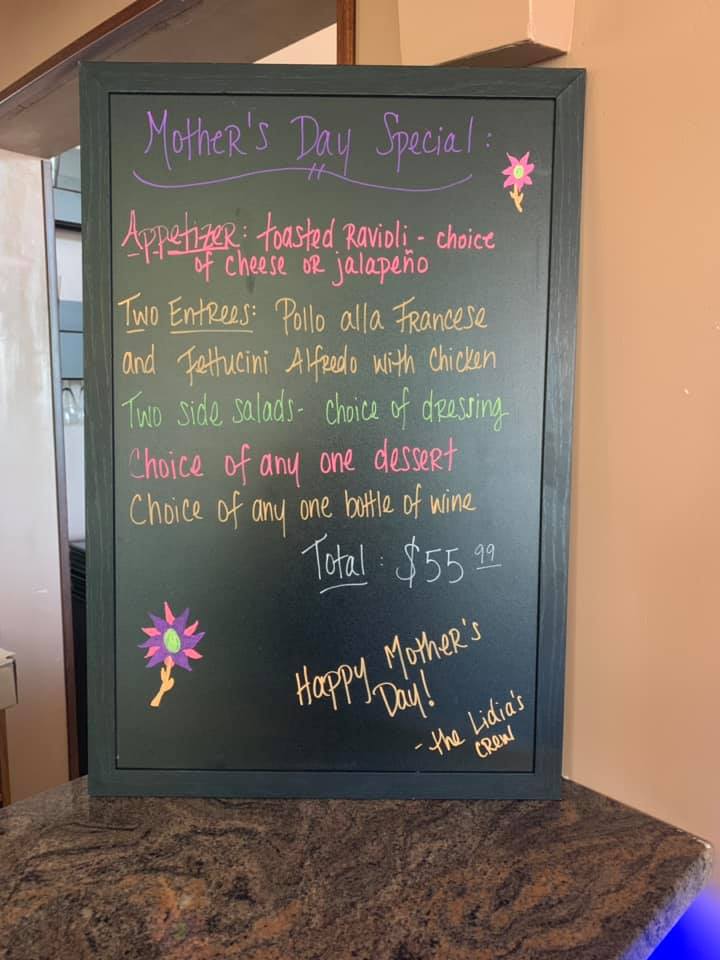 Mother's Day Special:
Appetizer: toasted Ravioli - choice
of cheese or jalapeño
Two Entrees: Pollo alla Francese
and Fettucini Alfredo with Chicken
Two side salads - choice of dressing
Choice of any one dessert
Choice of any one bottle of wine
Total: $55 99
Happy Mother's
Day!
- the Lidia's
crew